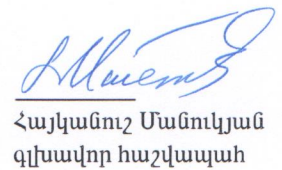 Հայկանուշ Մանուկյան
գլխավոր հաշվապահ